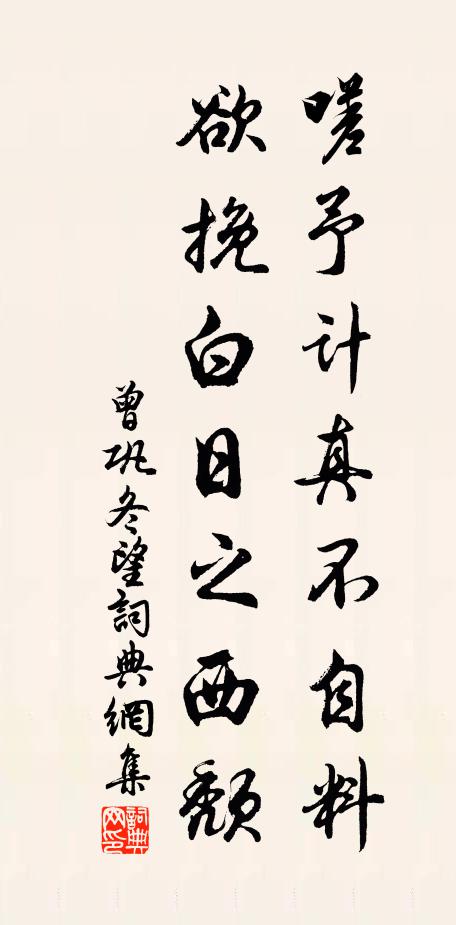 嗟予计真不自料
欲挽白日之西頹
曾巩冬望詞典網集
詞典网印